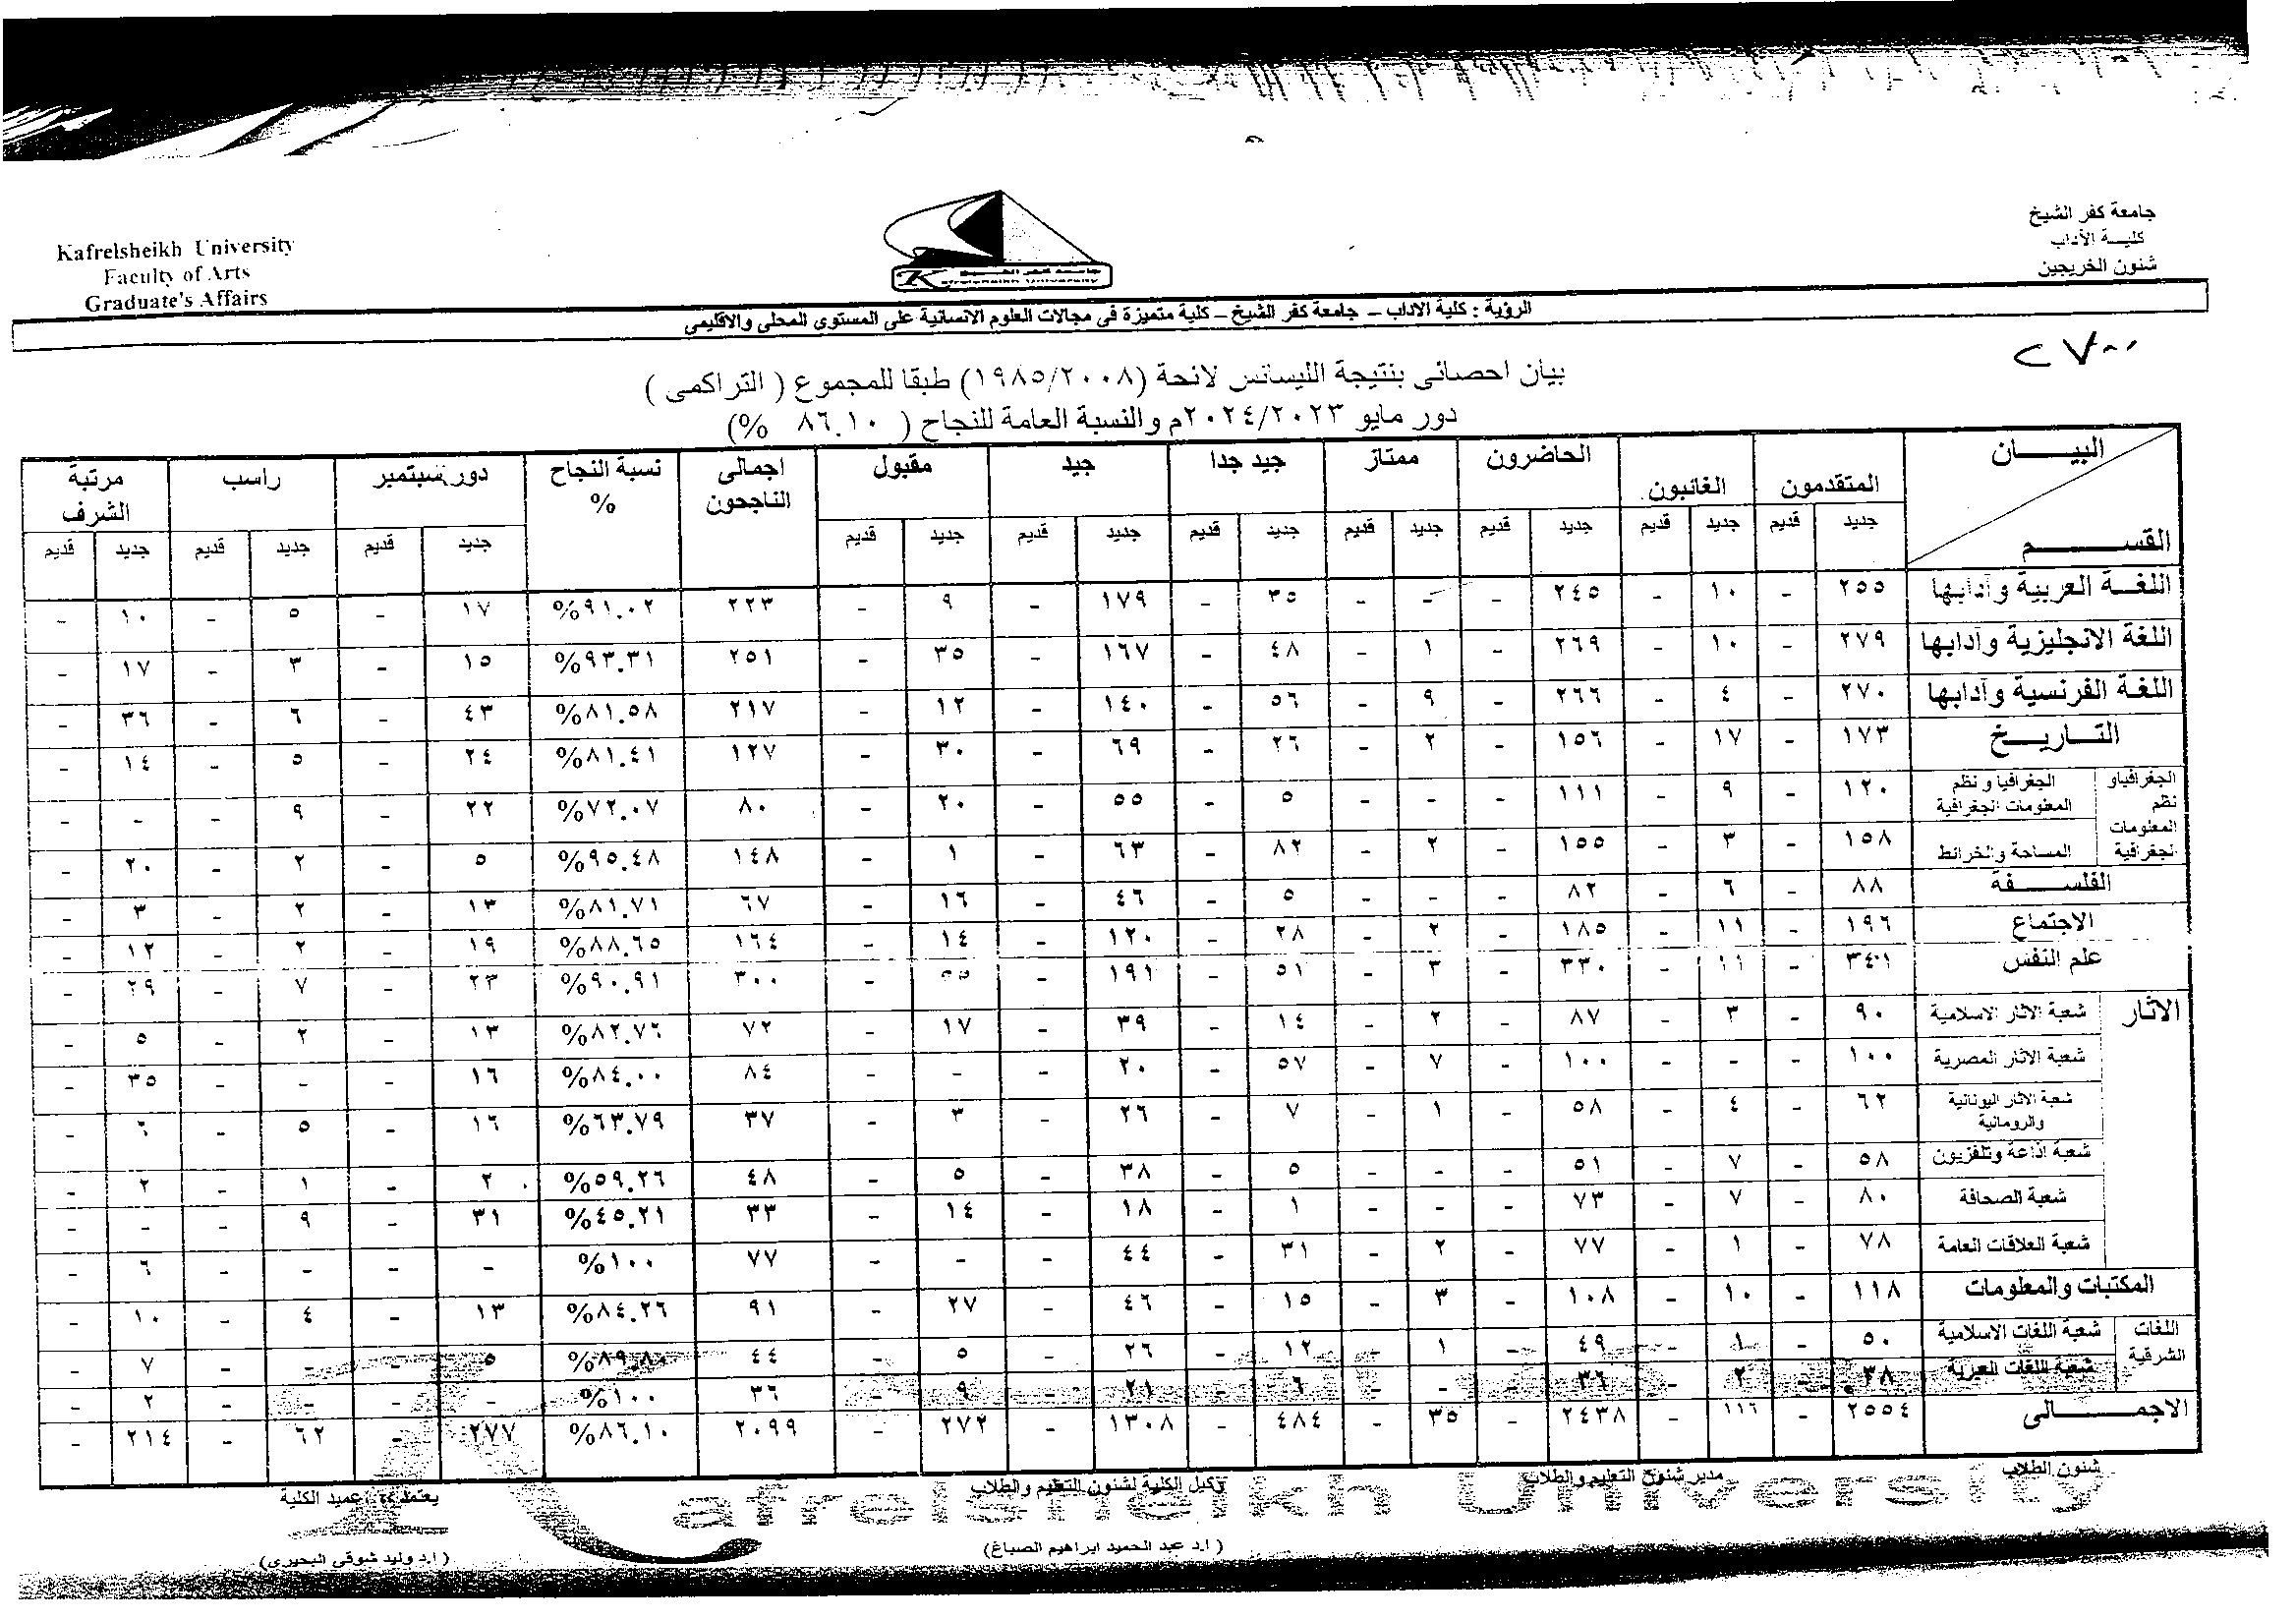 جامعة كفر الشيخ
كليـــة الآداب
شئون الخريجين
Kafrelsheikh University
Faculty of Arts
Graduate's Affairs
جامعة كفر الشيخ
Kafrelsheikh University
الرؤية : كلية الاداب – جامعة كفر الشيخ – كلية متميزة فى مجالات العلوم الانسانية على المستوى المحلى والاقليمى
٢٧٠٠
بيان احصائى بنتيجة الليسانس لائحة (١٩٨٥/٢٠٠٨) طبقا للمجموع ( التراكمى )
دور مايو ٢٠٢٤/٢٠٢٣م والنسبة العامة للنجاح ( ٨٦.١٠ %)
البيـــــان المتقدمون الغائبون الحاضرون ممتاز جيد جدا جيد مقبول اجمالى الناجحون نسبة النجاح % دور سبتمبر راسب مرتبة الشرف
القســـــــم جديد قديم جديد قديم جديد قديم جديد قديم جديد قديم جديد قديم جديد قديم جديد قديم جديد قديم جديد قديم
اللغـــة العربية وآدابها ٢٥٥ - ١٠ - ٢٤٥ - - - ٣٥ - ١٧٩ - ٩ - ٢٢٣ %٩١.٠٢ ١٧ - ٥ - ١٠ -
اللغة الانجليزية وآدابها ٢٧٩ - ١٠ - ٢٦٩ - ١ - ٤٨ - ١٦٧ - ٣٥ - ٢٥١ %٩٣.٣١ ١٥ - ٣ - ١٧ -
اللغـة الفرنسية وآدابها ٢٧٠ - ٤ - ٢٦٦ - ٩ - ٥٦ - ١٤٠ - ١٢ - ٢١٧ %٨١.٥٨ ٤٣ - ٦ - ٣٦ -
التـــاريـــــخ ١٧٣ - ١٧ - ١٥٦ - ٢ - ٢٦ - ٦٩ - ٣٠ - ١٢٧ %٨١.٤١ ٢٤ - ٥ - ١٤ -
الجغرافياو نظم المعومات الجغرافية
الجغرافيا و نظم المعلومات الجغرافية ١٢٠ - ٩ - ١١١ - - - ٥ - ٥٥ - ٢٠ - ٨٠ %٧٢.٠٧ ٢٢ - ٩ - - -
المساحة والخرائط ١٥٨ - ٣ - ١٥٥ - ٢ - ٨٢ - ٦٣ - ١ - ١٤٨ %٩٥.٤٨ ٥ - ٢ - ٢٠ -
الفلســـــفة ٨٨ - ٦ - ٨٢ - - - ٥ - ٤٦ - ١٦ - ٦٧ %٨١.٧١ ١٣ - ٢ - ٣ -
الاجتماع ١٩٦ - ١١ - ١٨٥ - ٢ - ٢٨ - ١٢٠ - ١٤ - ١٦٤ %٨٨.٦٥ ١٩ - ٢ - ١٢ -
علم النفس ٣٤١ - ١١ - ٣٣٠ - ٣ - ٥١ - ١٩١ - ٥٥ - ٣٠٠ %٩٠.٩١ ٢٣ - ٧ - ٢٩ -
الاثار
شعبة الاثار الاسلامية ٩٠ - ٣ - ٨٧ - ٢ - ١٤ - ٣٩ - ١٧ - ٧٢ %٨٢.٧٦ ١٣ - ٢ - ٥ -
شعبة الاثار المصرية ١٠٠ - - - ١٠٠ - ٧ - ٥٧ - ٢٠ - - - ٨٤ %٨٤.٠٠ ١٦ - - - ٣٥ -
شعبة الاثار اليونانية والرومانية ٦٢ - ٤ - ٥٨ - ١ - ٧ - ٢٦ - ٣ - ٣٧ %٦٣.٧٩ ١٦ - ٥ - ٦ -
شعبة اذاعة وتلفزيون ٥٨ - ٧ - ٥١ - - - ٥ - ٣٨ - ٥ - ٤٨ %٥٩.٢٦ ٢ - ١ - ٢ -
شعبة الصحافة ٨٠ - ٧ - ٧٣ - - - ١ - ١٨ - ١٤ - ٣٣ %٤٥.٢١ ٣١ - ٩ - - -
شعبة العلاقات العامة ٧٨ - ١ - ٧٧ - ٢ - ٣١ - ٤٤ - - - ٧٧ %١٠٠ - - - - ٦ -
المكتبات والمعلومات ١١٨ - ١٠ - ١٠٨ - ٣ - ١٥ - ٤٦ - ٢٧ - ٩١ %٨٤.٢٦ ١٣ - ٤ - ١٠ -
اللغات الشرقية
شعبة اللغات الاسلامية ٥٠ - ١ - ٤٩ - ١ - ١٢ - ٢٦ - ٥ - ٤٤ %٨٩.٨٠ ٥ - - - ٧ -
شعبة اللغات العبرية ٣٨ - ٢ - ٣٦ - - - ٦ - ٢١ - ٩ - ٣٦ %١٠٠ - - - - ٢ -
الاجمـــــــالى ٢٥٥٤ - ١١٦ - ٢٤٣٨ - ٣٥ - ٤٨٤ - ١٣٠٨ - ٢٧٢ - ٢٠٩٩ %٨٦.١٠ ٢٧٧ - ٦٢ - ٢١٤ -
شئون الطلاب مدير شئون التعليم والطلاب وكيل الكلية لشئون التعليم والطلاب يعتمد،،، عميد الكلية
Kafrelsheikh University
( ا.د عبد الحميد ابراهيم الصباغ) ( ا.د وليد شوقى البحيرى)